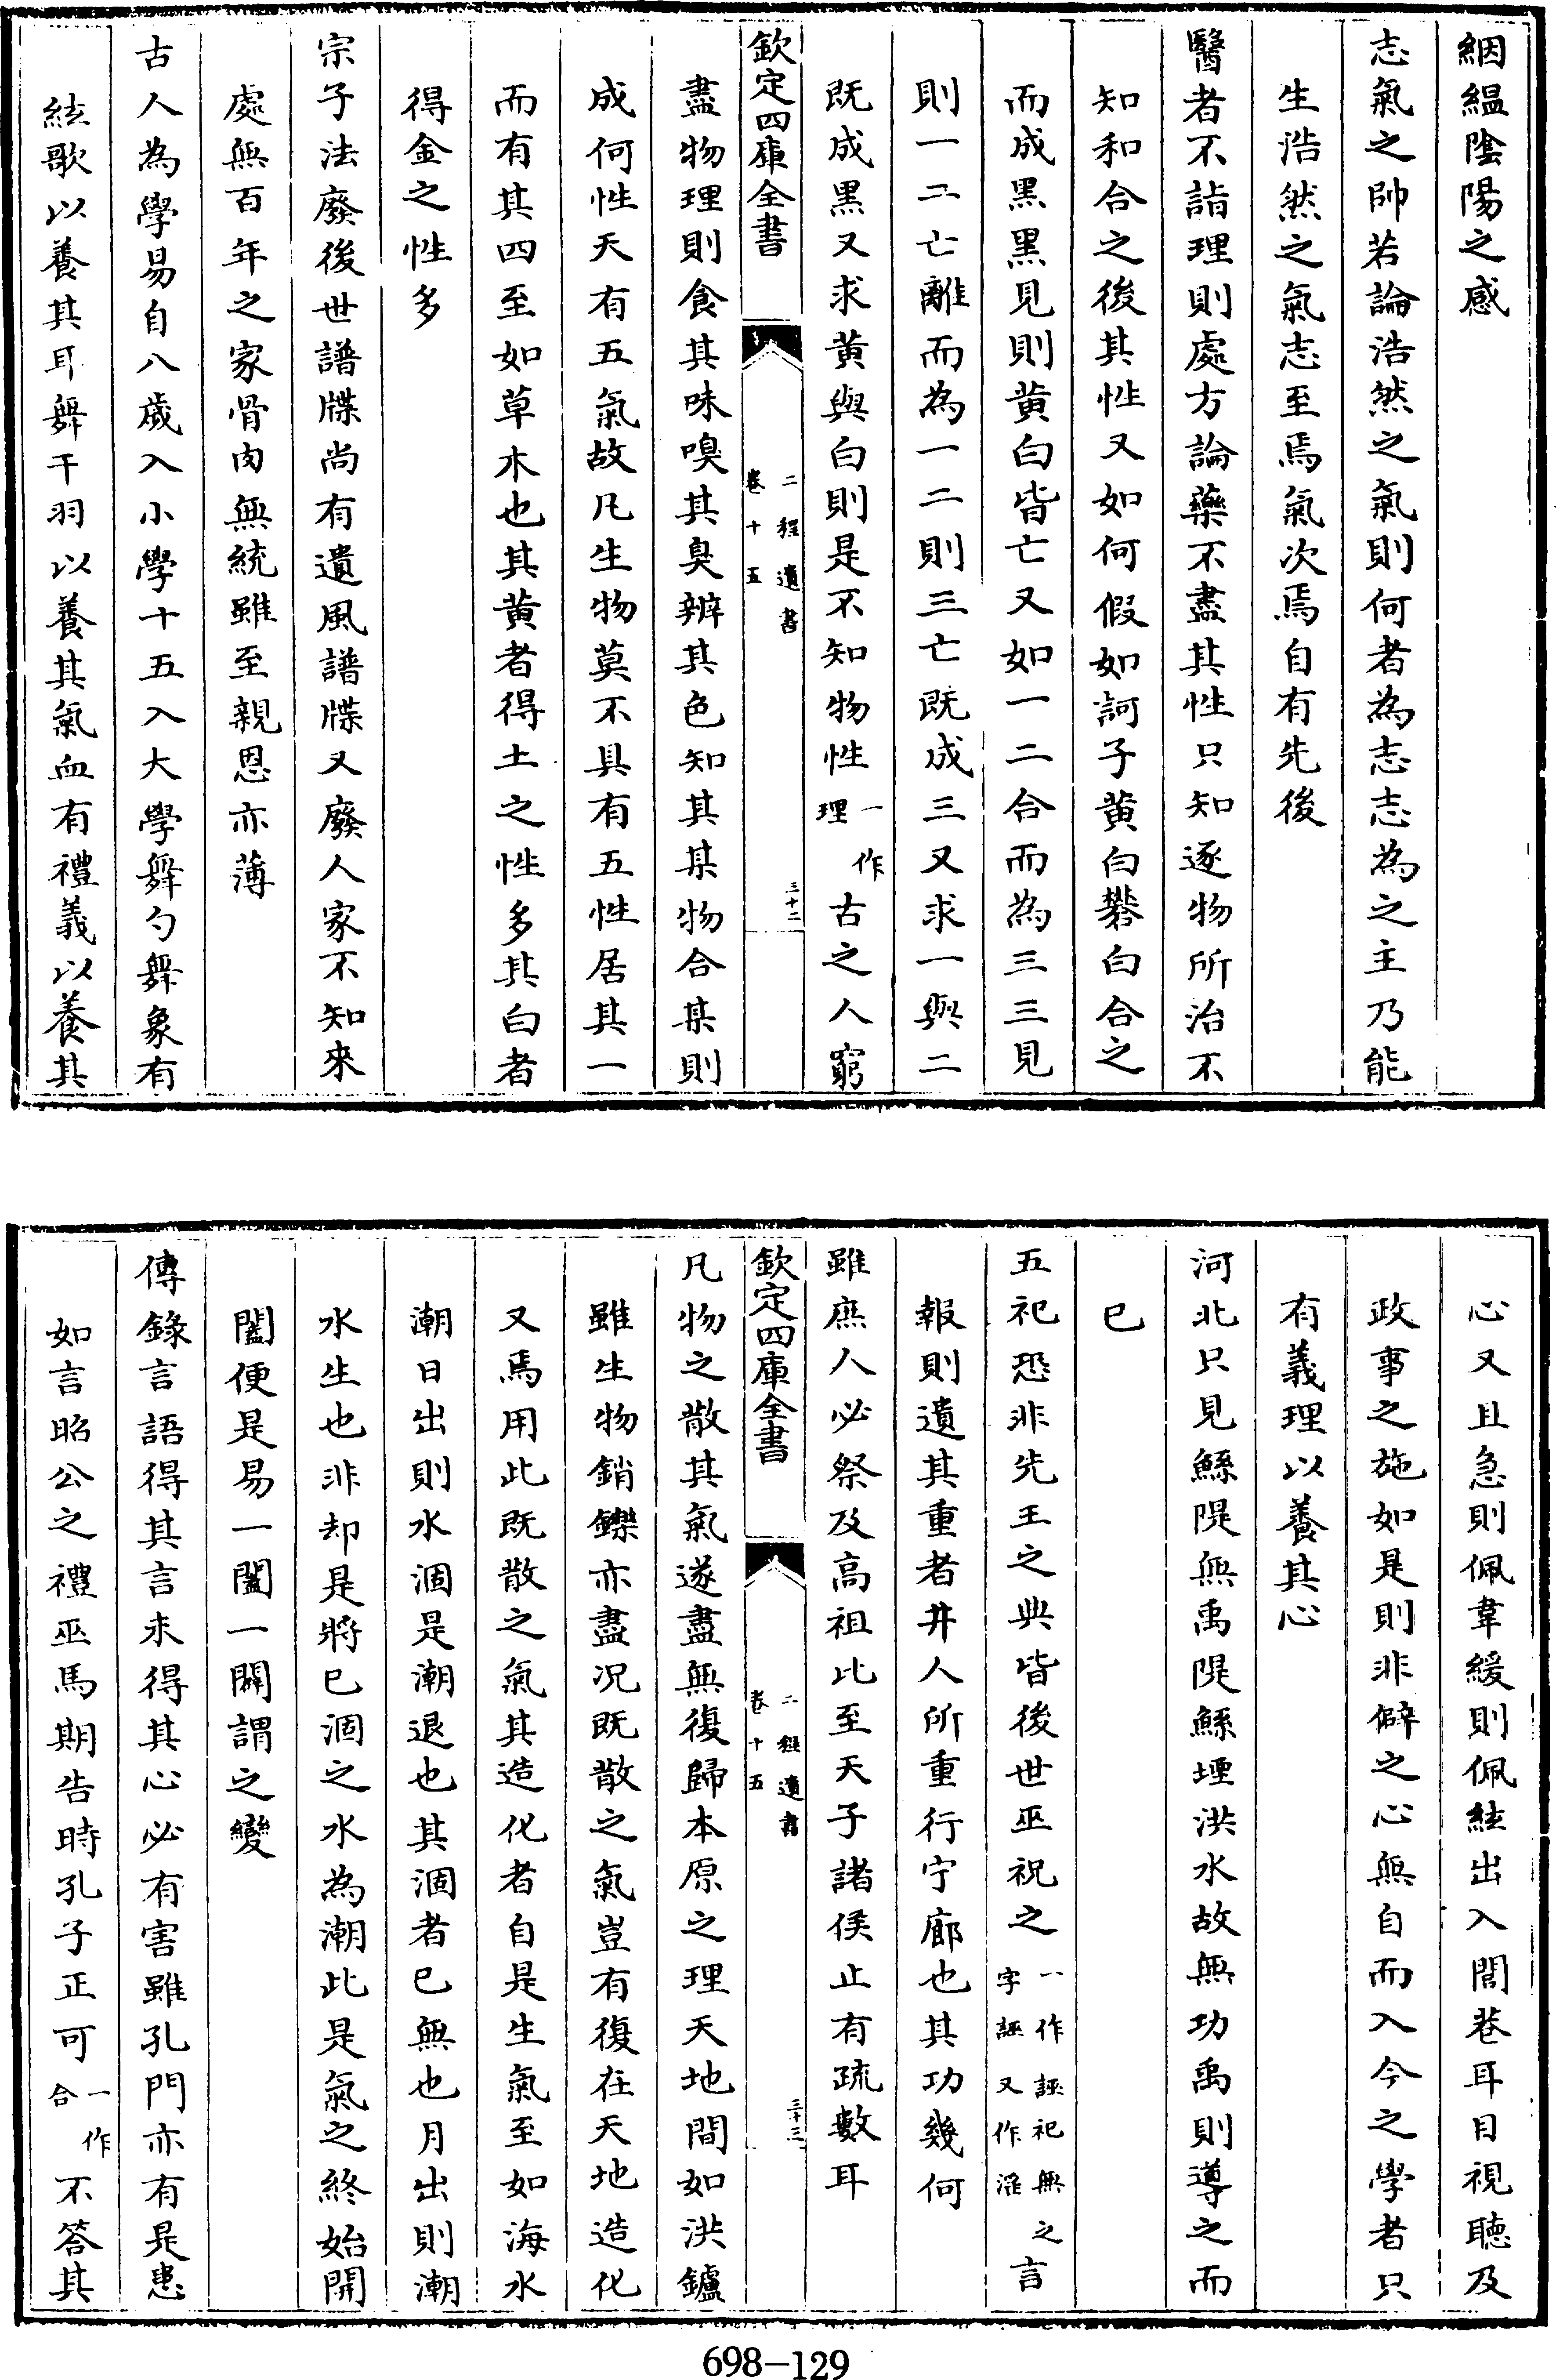 絪緼陰陽之感
志氣之帥若論浩然之氣則何者為志志為之主乃能
生浩然之氣志至焉氣次焉自有先後
醫者不詣理則處方論藥不盡其性只知逐物所治不
知和合之後其性又如何假如訶子黄白礬白合之
而成黑黑見則黄白皆亡又如一二合而為三三見
則一二亡離而為一二則三亡既成三又求一與二
既成黑又求黄與白則是不知物性一作理古之人窮
欽定四庫全書
二程遺書
卷十五
三十二
盡物理則食其味嗅其臭辨其色知其某物合某則
成何性天有五氣故凡生物莫不具有五性居其一
而有其四至如草木也其黄者得土之性多其白者
得金之性多
宗子法廢後世譜牒尚有遺風譜牒又廢人家不知來
處無百年之家骨肉無統雖至親恩亦薄
古人為學易自八歲入小學十五入大學舞勺舞象有
絃歌以養其耳舞干羽以養其氣血有禮義以養其
心又且急則佩韋緩則佩絃出入閭巷耳目視聽及
政事之施如是則非僻之心無自而入今之學者只
有義理以養其心
河北只見鯀隄無禹隄鯀堙洪水故無功禹則導之而
已
五祀恐非先王之典皆後世巫祝之一作誣祀無之字誣又作淫言
報則遺其重者井人所重行宁廊也其功幾何
雖庶人必祭及高祖比至天子諸侯止有疏數耳
欽定四庫全書
二程遺書
卷十五
三十三
凡物之散其氣遂盡無復歸本原之理天地間如洪鑪
雖生物銷鑠亦盡况既散之氣豈有復在天地造化
又焉用此既散之氣其造化者自是生氣至如海水
潮日出則水涸是潮退也其涸者已無也月出則潮
水生也非却是將已涸之水為潮此是氣之終始開
闔便是易一闔一闢謂之變
傳錄言語得其言未得其心必有害雖孔門亦有是患
如言昭公之禮巫馬期告時孔子正可一作合不答其
698-129